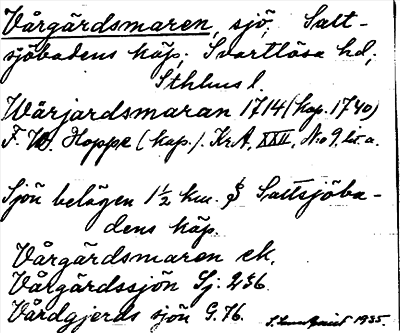 Vårgärdsmaren, sjö, Salt-
sjöbadens köp; Svartlösa hd;
Sthlms l.
Wårjardsmaran 1714 (kop. 1740)
F. W. Hoppe (kap.). KrA, XXII, No 9. lit. a.
Sjön belägen 1½ km. S Saltsjöba-
dens köp.
Vårgärdsmaren ek.
Vårgärdssjön Sj. 236.
Vårdgjerds sjön G. 76.
1935.